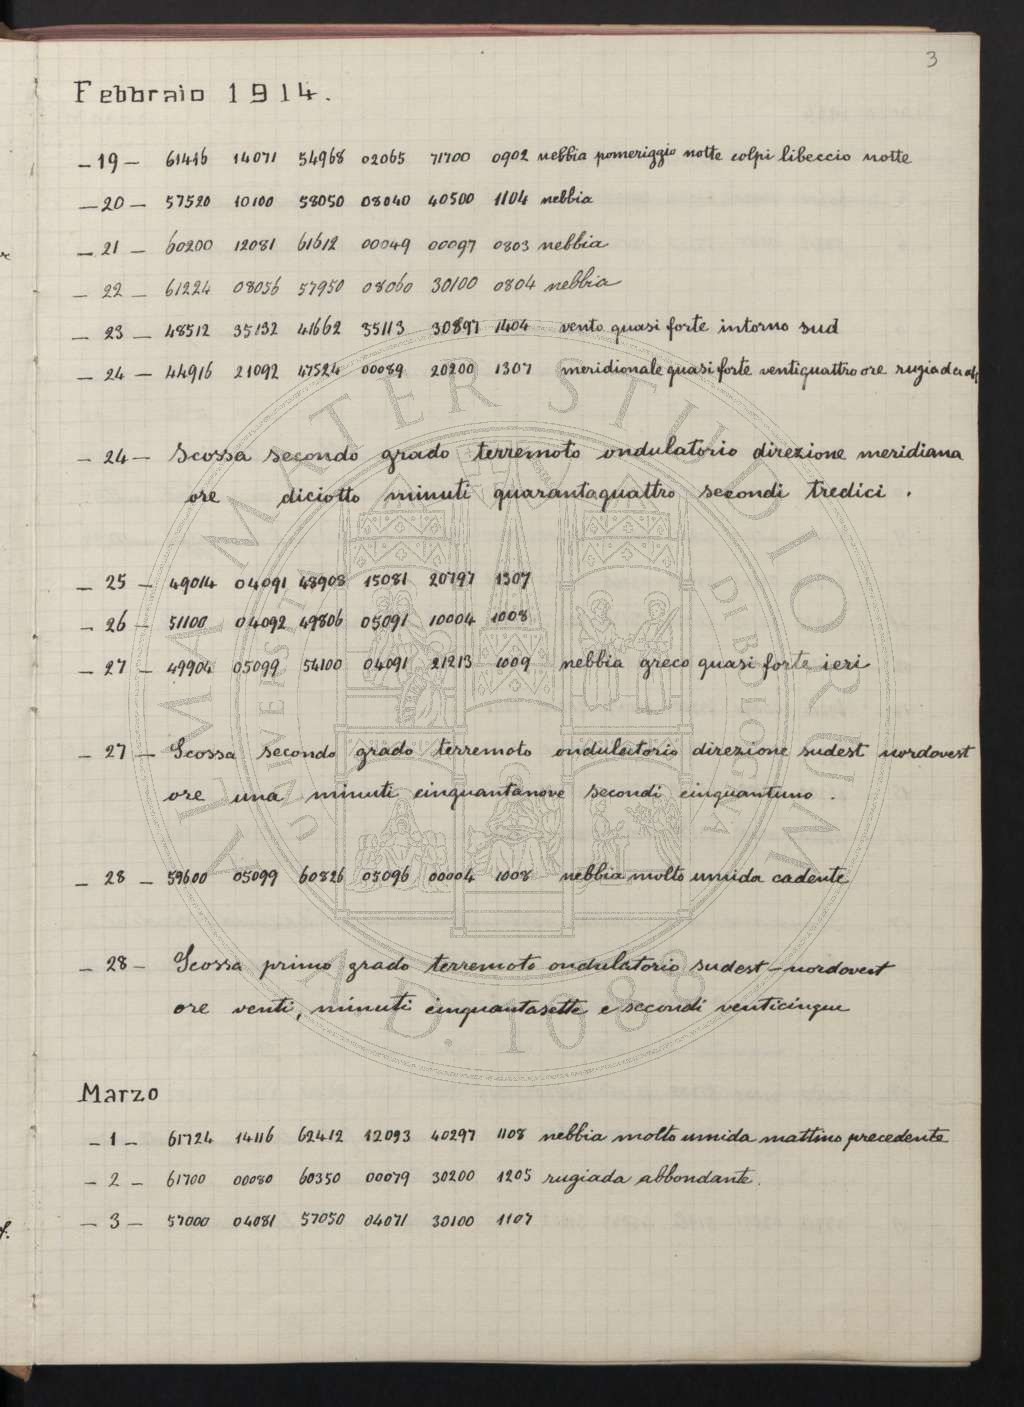 3
Febbraio 1914.
– 19 – 61416 14071 54968 02065 71700 0902 nebbia pomeriggio notte colpi libeccio notte
– 20 – 57520 10100 58050 08040 40500 1104 nebbia
– 21 – 60200 12081 61612 00049 00097 0803 nebbia
– 22 – 61224 08056 57950 08060 30100 0804 nebbia
– 23 – 48512 35132 41662 35113 30897 1404 vento quasi forte intorno sud
– 24 – 44916 21092 47524 00089 20200 1307 meridionale quasi forte ventiquattro ore rugiada
– 24 – Scossa secondo grado terremoto ondulatorio direzione meridiana
ore diciotto minuti quarantaquattro secondi tredici .
– 25 – 49014 04091 48908 15081 20797 1307
– 26 – 51100 04092 49806 05091 10004 1008
– 27 – 49904 05099 54100 04091 21213 1009 nebbia greco quasi forte ieri
– 27 – Scossa secondo grado terremoto ondulatorio direzione sudest nordovest
ore una minuti cinquantanove secondi cinquantuno .
– 28 – 59600 05099 60826 05096 00004 1008 nebbia molto umida cadente
– 28 – Scossa primo grado terremoto ondulatorio sudest – nordovest
ore venti, minuti cinquantasette e secondi venticinque
Marzo
– 1 – 61724 14116 62412 12093 40297 1108 nebbia molto umida mattino precedente
– 2 – 61700 00080 60350 00079 30200 1205 rugiada abbondante.
– 3 – 57000 04081 57050 04071 30100 1107
ALMA MATER STUDIORUM
UNIVERSITÀ DI BOLOGNA
A.D. 1088